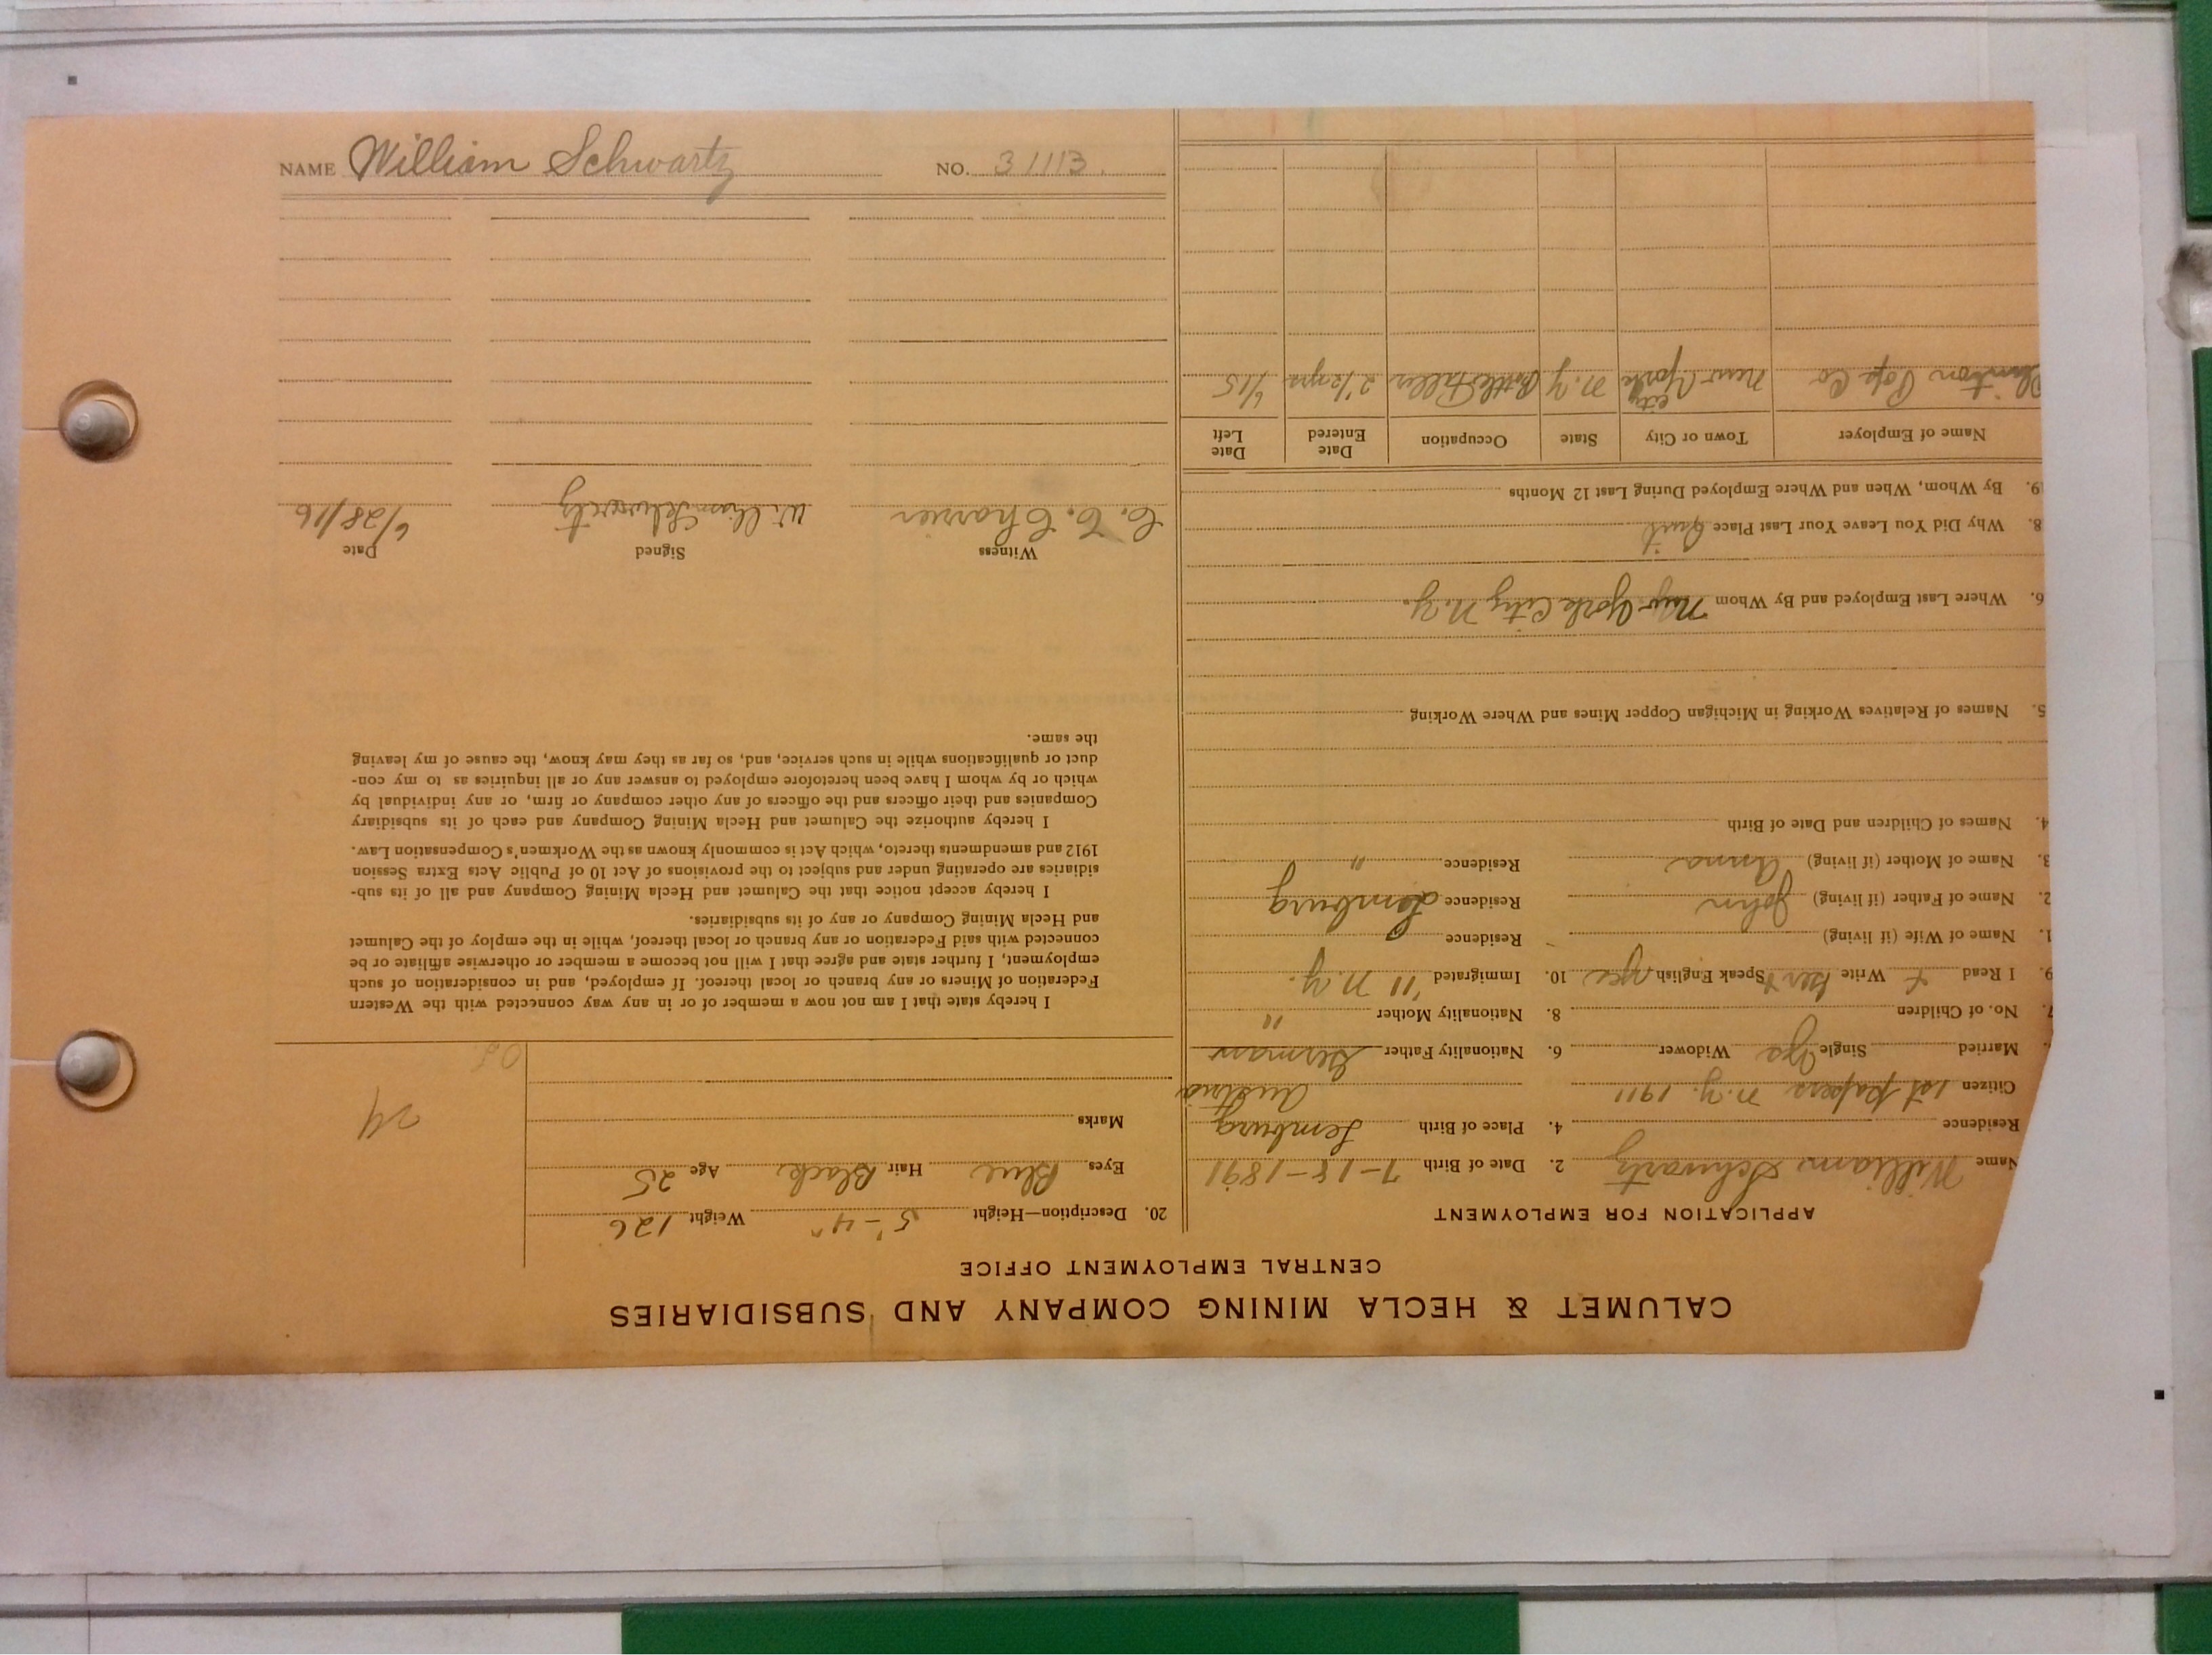 NAME William Schwartz NO. 31113.
CALUMET & HECLA MINING COMPANY AND SUBSIDIARIES
CENTRAL EMPLOYMENT OFFICE
APPLICATION FOR EMPLOYMENT
Name William Schwartz 2. Date of Birth 7-18-1891
Residence 4. Place of Birth Lemburg
Austria
Citizen 1st papers N.Y. 1911
Married Single Yes Widower 6. Nationality Father German
7. No. of Children 8. Nationality Mother "
9. I Read Write Speak English yes 10. Immigrated '11 N.Y.
1. Name of Wife (if living) Residence
2. Name of Father (if living) John Residence Lemburg
3. Name of Mother (if living) Anna Residence "
4. Names of Children and Date of Birth
5. Names of Relatives Working in Michigan Copper Mines and Where Working
6. Where Last Employed and By Whom New York City N.Y.
8. Why Did You Leave Your Last Place Quit
19. By Whom, When and Where Employed During Last 12 Months
Name of Employer Town or City State Occupation Date Entered Date Left
Pop Co New York City N.Y. Bottle 2 1/2 yrs 6/15
20. Description—Height 5'-4" Weight 126
Eyes Blue Hair Black Age 25
Marks
24
I hereby state that I am not now a member of or in any way connected with the Western
Federation of Miners or any branch or local thereof. If employed, and in consideration of such
employment, I further state and agree that I will not become a member or otherwise affiliate or be
connected with said Federation or any branch or local thereof, while in the employ of the Calumet
and Hecla Mining Company or any of its subsidiaries.
I hereby accept notice that the Calumet and Hecla Mining Company and all of its sub-
sidiaries are operating under and subject to the provisions of Act 10 of Public Acts Extra Session
1912 and amendments thereto, which Act is commonly known as the Workmen's Compensation Law.
I hereby authorize the Calumet and Hecla Mining Company and each of its subsidiary
Companies and their officers and the officers of any other company or firm, or any individual by
which or by whom I have been heretofore employed to answer any or all inquiries as to my con-
duct or qualifications while in such service, and, so far as they may know, the cause of my leaving
the same.
Witness Signed Date
William Schwartz 6/28/16